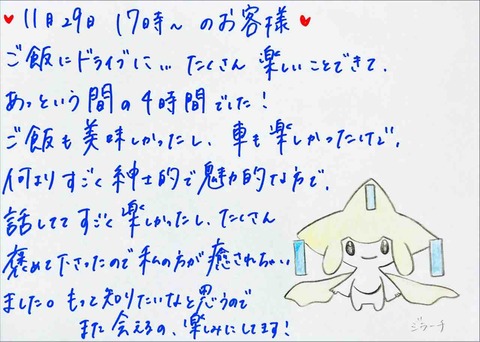 ♥11月29日 17時〜 のお客様♥
ご飯にドライブに… たくさん 楽しいことできて、
あっという間の4時間でした！
ご飯も美味しかったし、車も楽しかったけど、
何よりすごく紳士的で魅力的な方で、
話しててすごく楽しかったし、たくさん
褒めて下さったので私の方が癒されちゃい
ました。もって知りたいなと思うので
また会えるの、楽しみにしてます！
ジラーチ